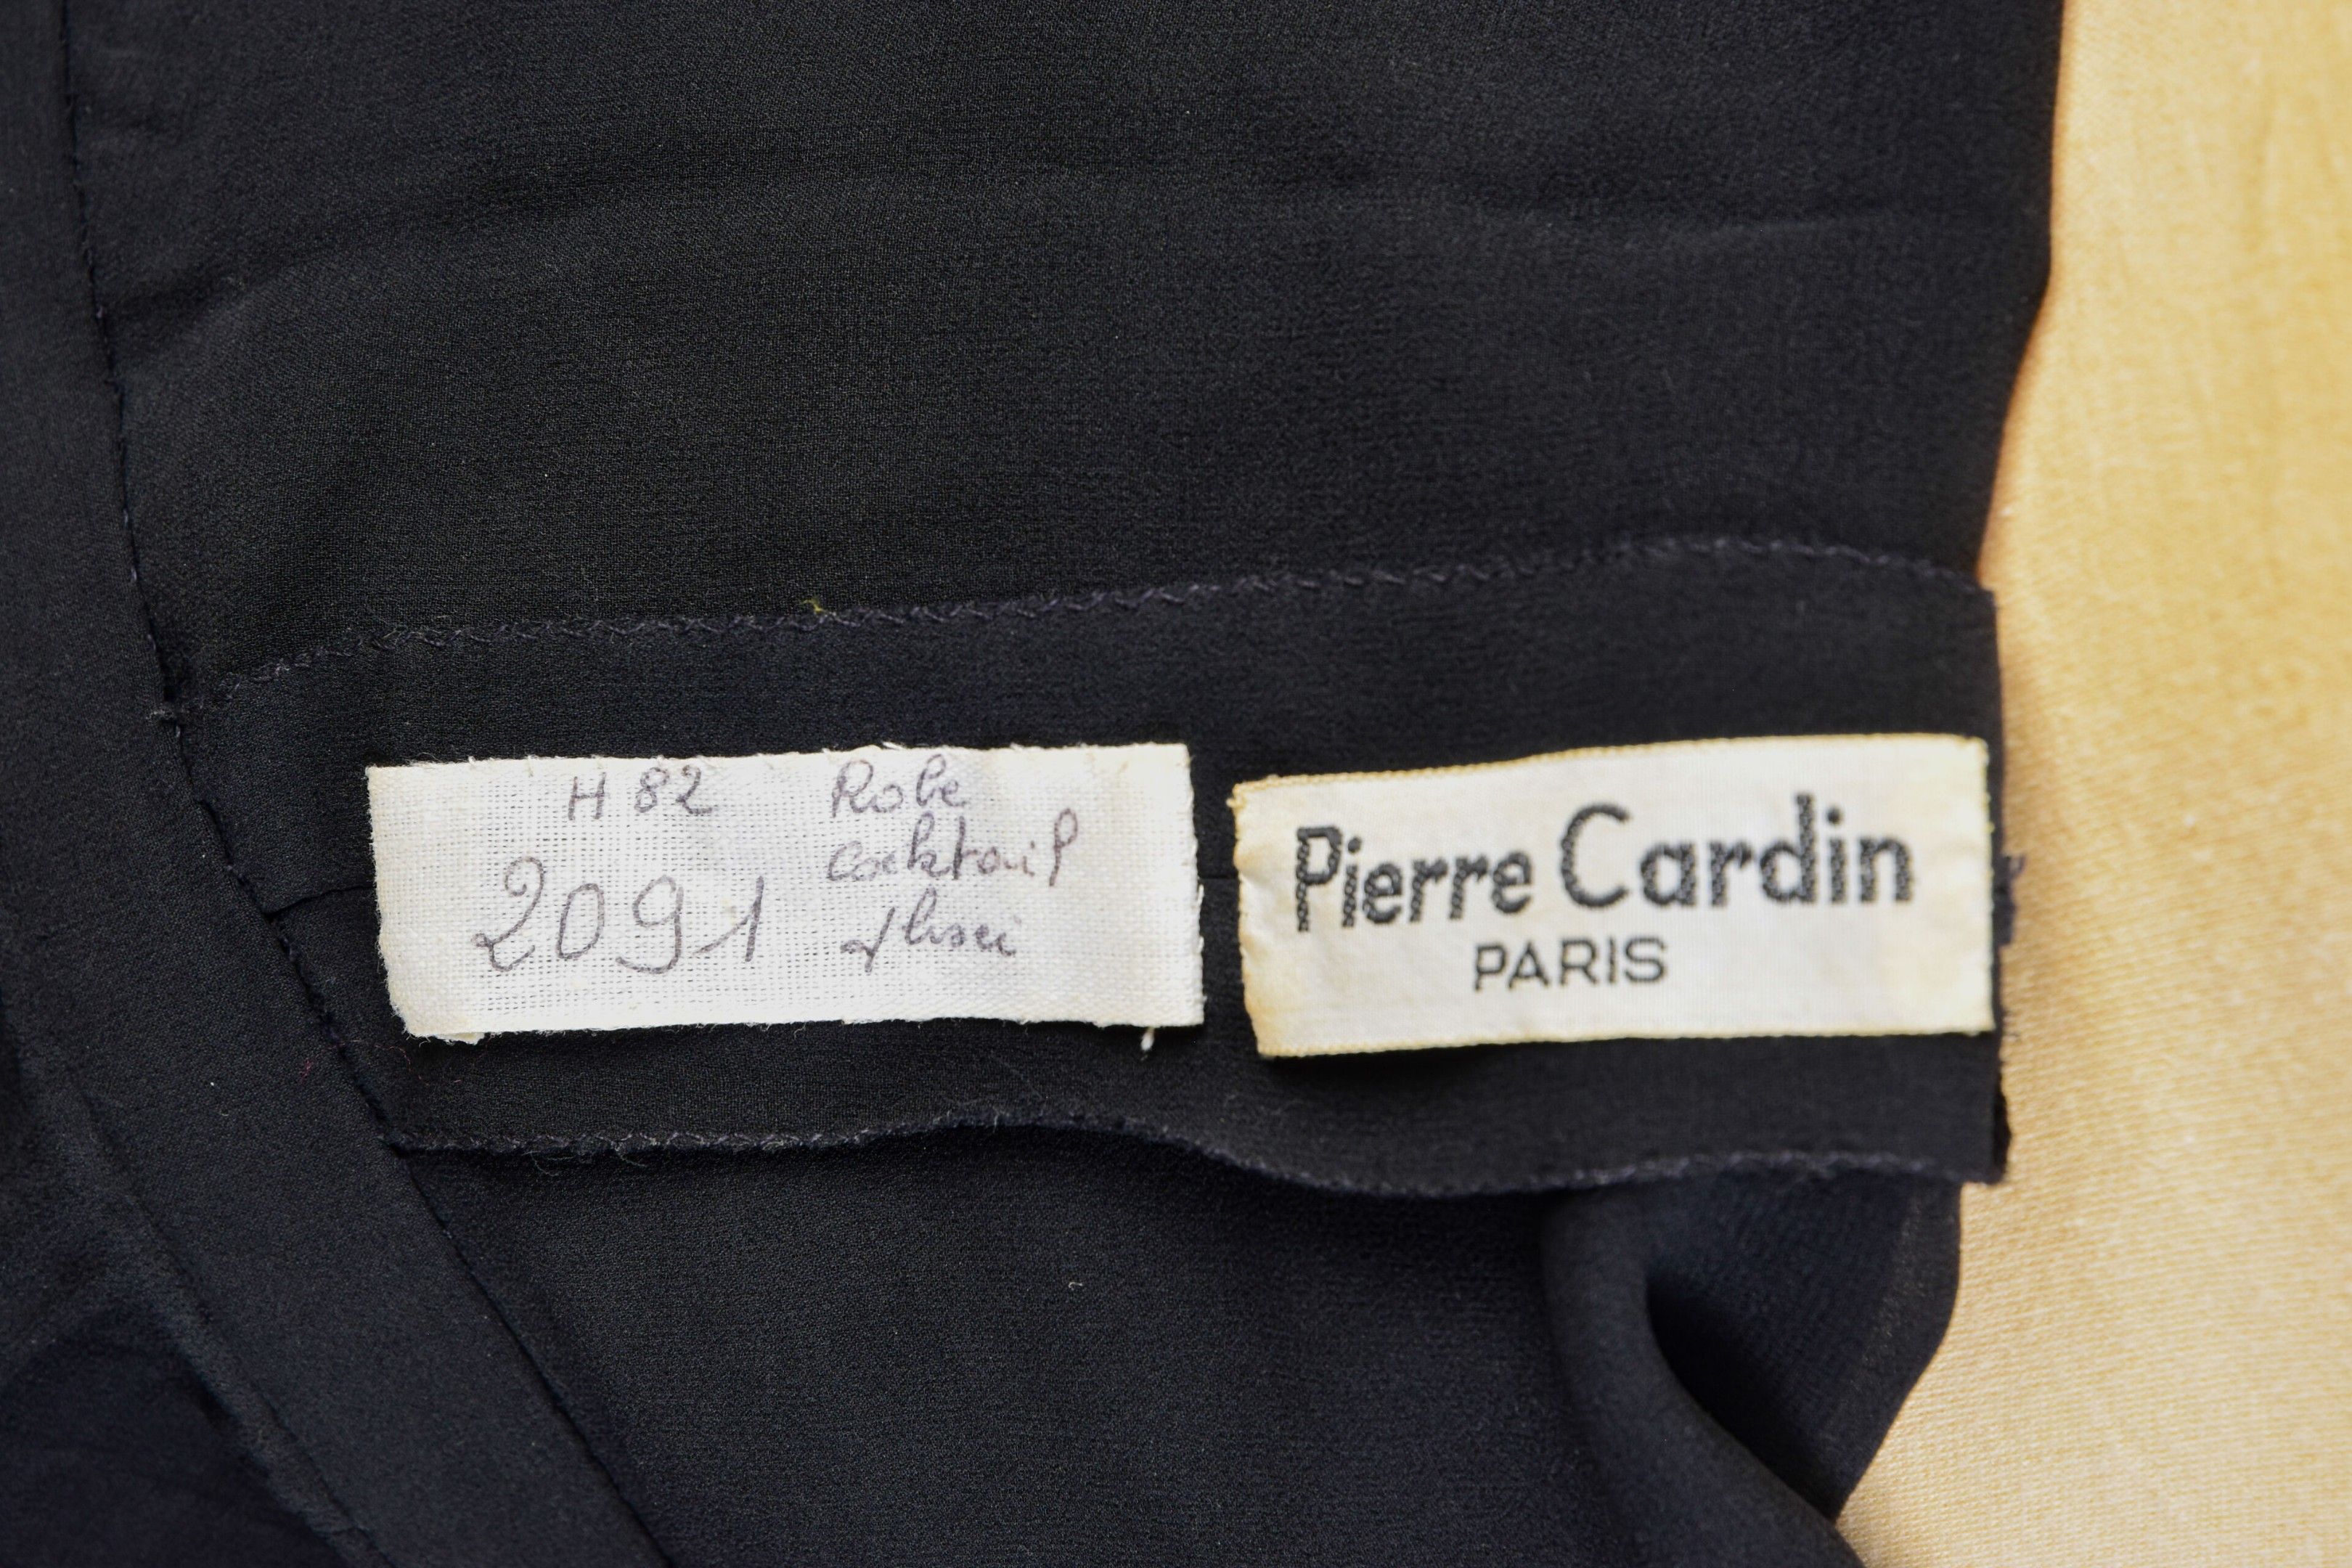 H 82
2091
Robe
cocktail
Pierre Cardin
PARIS